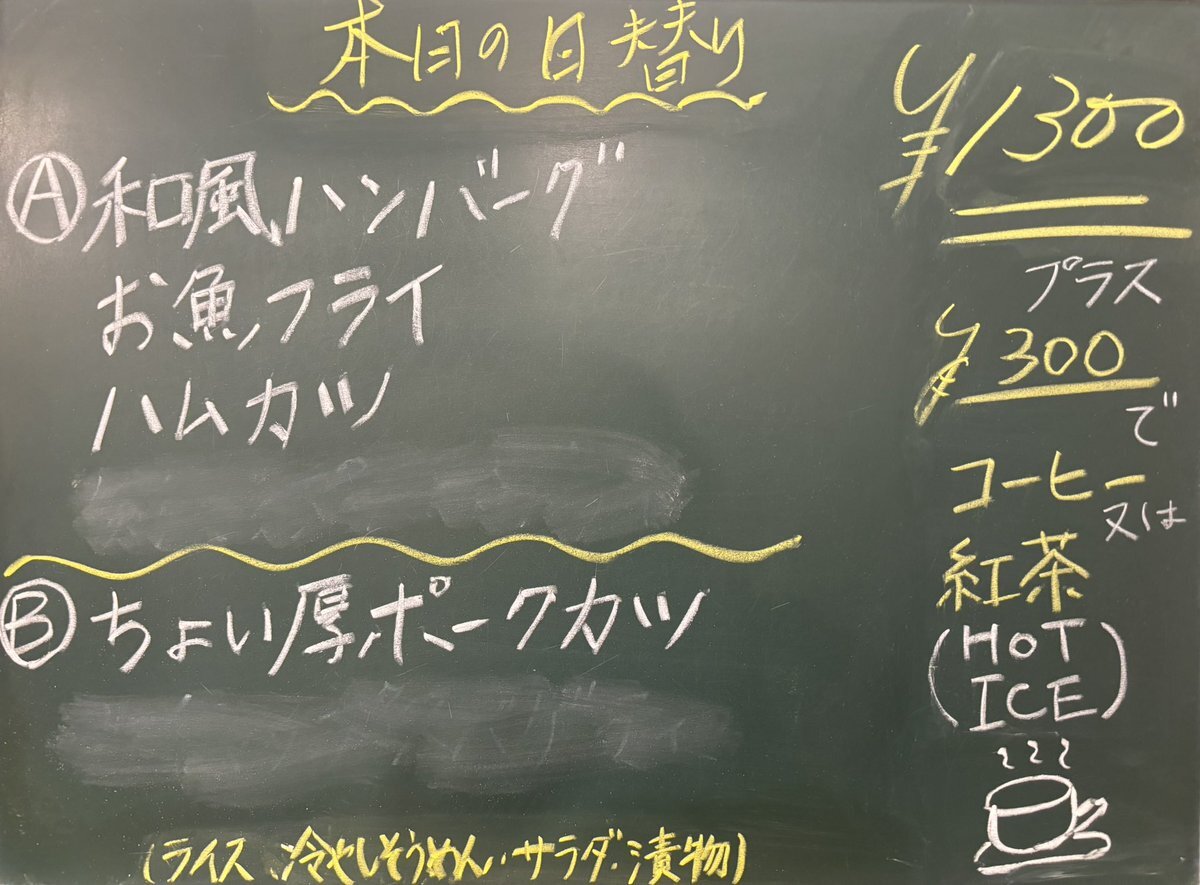 本日の日替り
Ⓐ和風ハンバーグ
お魚フライ
ハムカツ
Ⓑちょい厚ポークカツ
(ライス、冷やしそうめん、サラダ、漬物)
¥1300
プラス
¥300
で
コーヒー
又は
紅茶
(HOT
ICE)